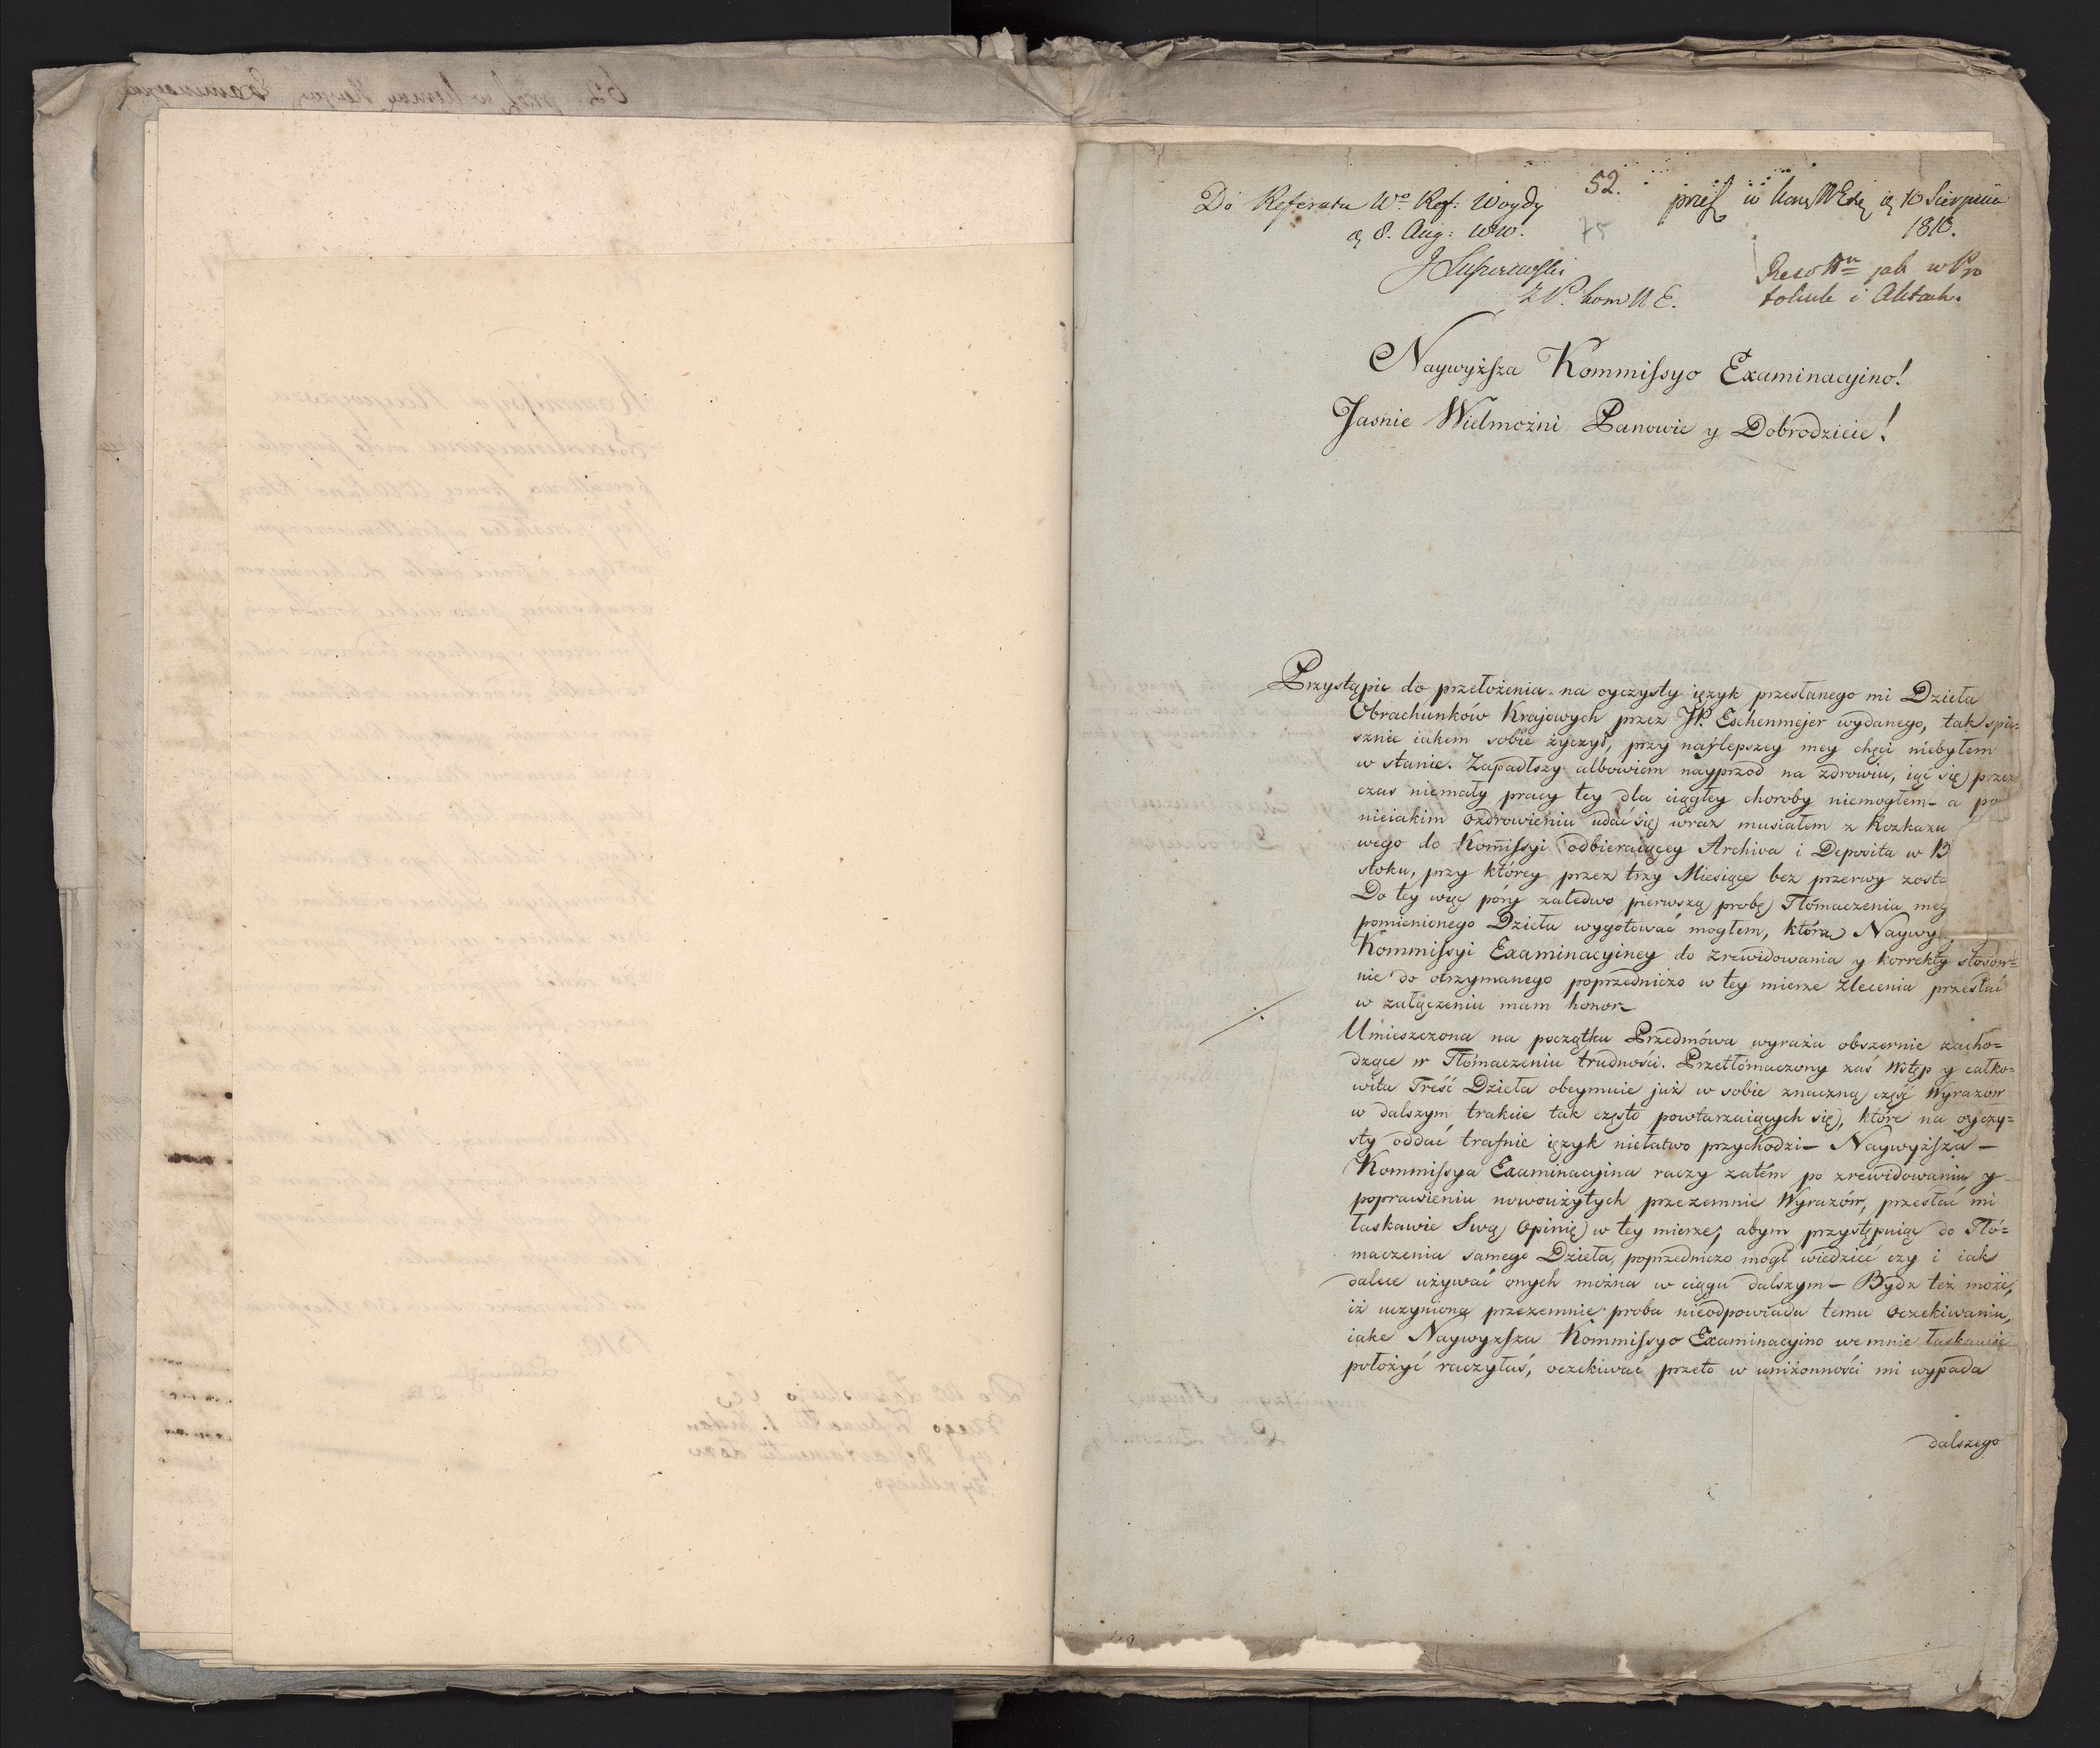 52.
Do Referatu Wº Ref: Woydy
d. 8. Aug: 1810.
75
Z P. kom N E.
10 Sierpnia
1810.
jak w Pro
tokule i Aktach.
Naywyższa Kommissyo Examinacyino!
Jasnie Wielmożni Panowie y Dobrodzieie!
Przystąpić do przełożenia na oyczysty ięzyk przesłanego mi Dzieła
Obrachunków Krajowych przez JP. Eschenmejer wydanego, tak spie-
sznie iakem sobie życzył, przy naylepszey mey chęci niebyłem
w stanie. Zapadłszy albowiem nayprzod na zdrowiu, iąć się przez
czas niemały pracy tey dla ciągłey choroby niemogłem - a po
nieiakim ozdrowieniu udać się wraz musiałem z Rozkazu
wego do Komissyi odbieraiącey Archiva i Deposita w B
stoku, przy którey przez trzy Miesiące bez przerwy zosta
Do tey więc póry zaledwo pierwszą probę Tłómaczenia meg
pomienionego Dzieła wygotować mogłem, którą Naywy
Kommissyi Examinacyiney do zrewidowania y korrekty stosow=
nie do otrzymanego poprzedniczo w tey mierze zlecenia przesłać
w załączeniu mam honor
Umieszczona na początku Przedmówa wyraża obszernie zacho=
dzące w Tłómaczeniu trudności. Przetłómaczony zaś Wstęp y całko=
wita Treść Dzieła obeymuie już w sobie znaczną część Wyrazow
w dalszym trakcie tak często powtarzaiących się, które na oyczy=
sty oddać trafnie ięzyk niełatwo przychodzi - Naywyższa -
Kommissya Examinacyina raczy zatém po zrewidowaniu y
poprawieniu nowoużytych przezemnie Wyrazów, przesłać mi
łaskawie Swą Opinię w tey mierze, abym przystępuiąc do Tłó=
maczenia samego Dzieła, poprzedniczo mogł wiedzieć czy i iak
dalece używać onych można w ciągu dalszym - Bydz też może,
iż uczyniona przezemnie proba nieodpowiada temu Oczekiwaniu,
iake Naywyższa Kommissyo Examinacyino we mnie łaskawie
położyć raczyłaś, oczekiwać przeto w uniżonności mi wypada
dalszego